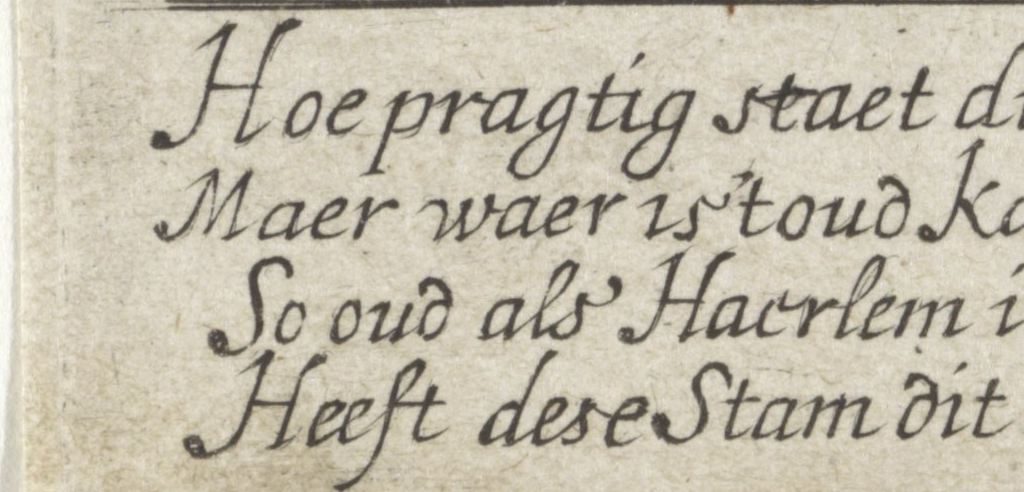 Hoe pragtig staet
Maer waer is 't oud
So oud als Haerlem
Heeft dese Stam dit